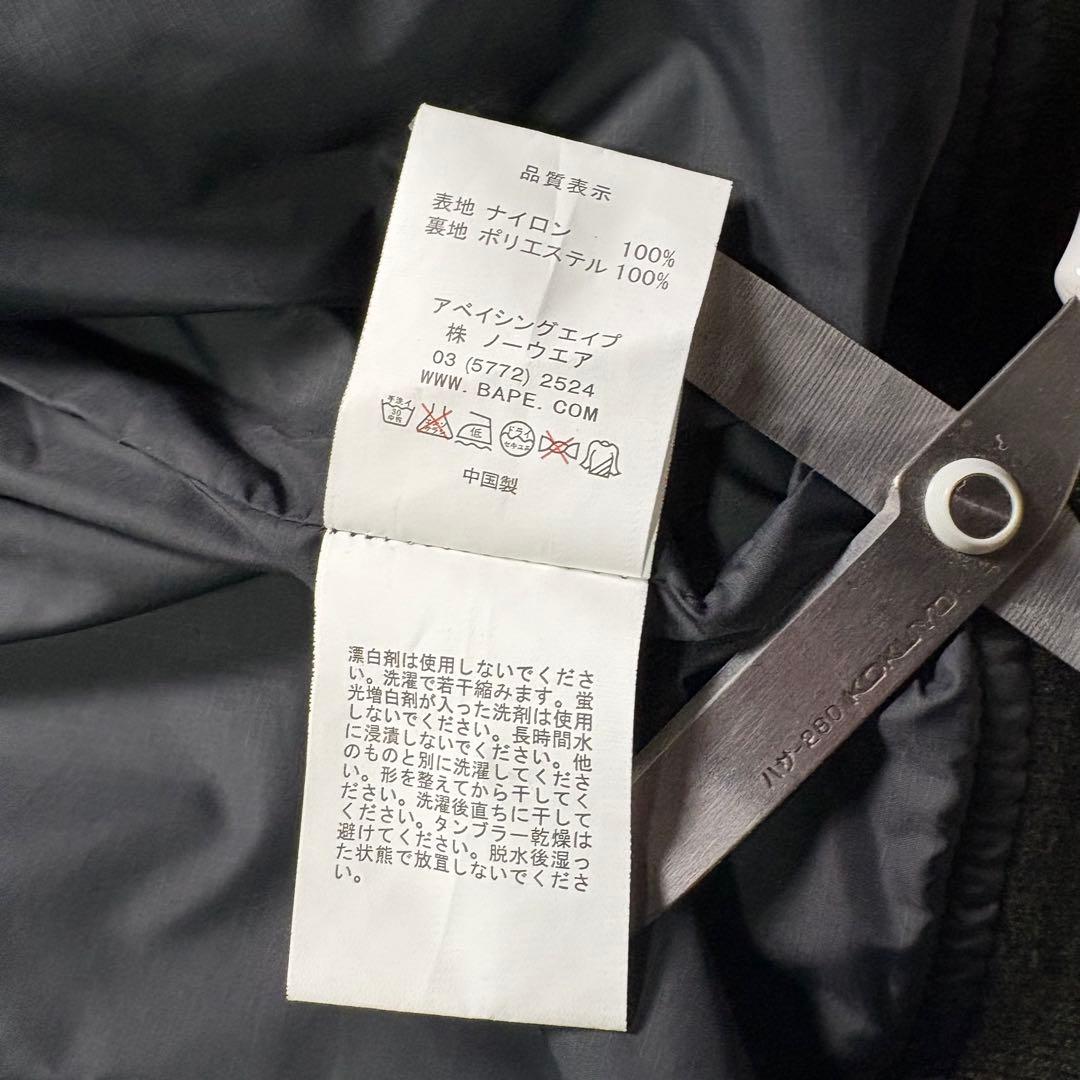 品質表示
表地 ナイロン 100%
裏地 ポリエステル 100%
アベイシングエイプ
株 ノーウエア
03 (5772) 2524
WWW. BAPE. COM
手洗イ
30
中性
エンソ
サラシ
低
ドライ
セキユ系
中国製
漂白剤は使用しないでくださ
い。洗濯で若干縮みます。蛍
光増白剤が入った洗剤は使用
しないでください。長時間水
に浸漬しないでください。他
のものと別に洗濯してくださ
い。形を整えてから干してく
ださい。洗濯後直ちに干して
ください。タンブラー乾燥は
避けてください。脱水後湿っ
た状態で放置しないでくださ
い。
KOKUYO
ハサ-280